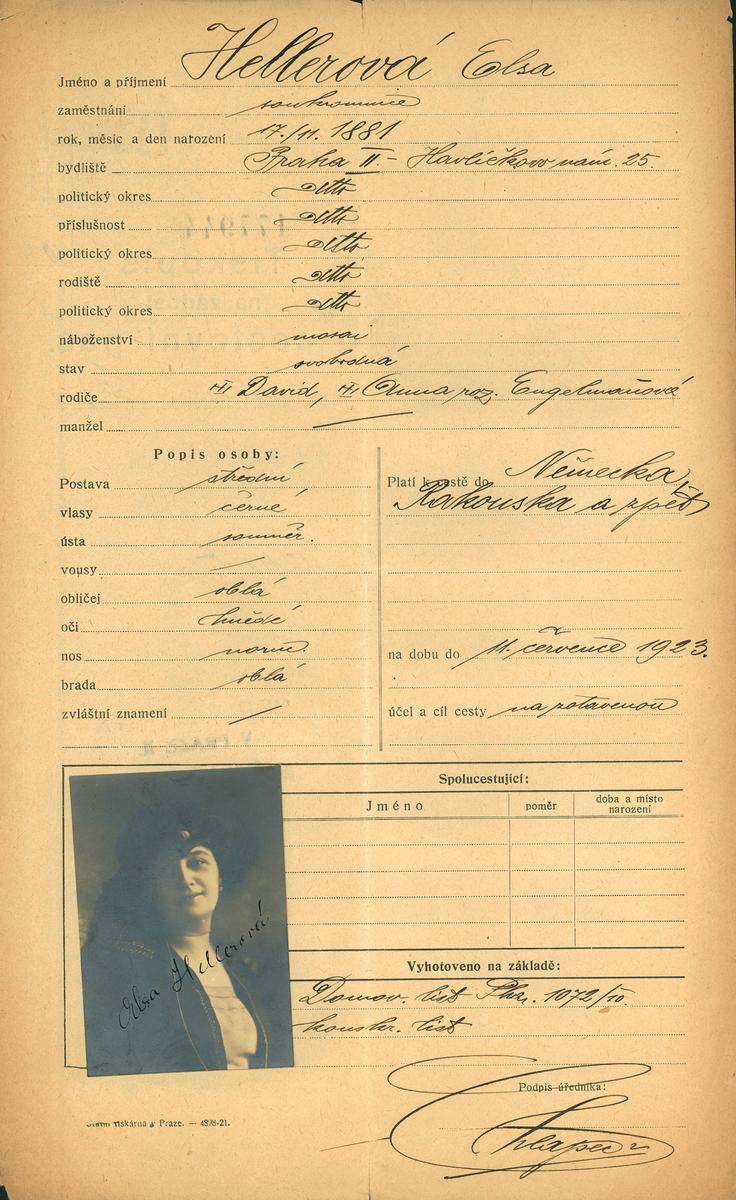 Jméno a příjmení Hellerová Elsa
zaměstnání soukromnice
rok, měsíc a den narození 17./11. 1881
bydliště Praha II – Havlíčkovo nám. 25.
politický okres detto
příslušnost detto
politický okres detto
rodiště detto
politický okres detto
náboženství mosai
stav svobodná
rodiče David, Anna roz. Engelmannová
manžel —
Popis osoby:
Postava střední
vlasy černé
ústa souměr.
vousy —
obličej oblá
oči hnědé
nos norm.
brada oblá
zvláštní znamení —
Platí k cestě do Německa,
Rakouska a zpět
na dobu do 11. července 1923.
účel a cíl cesty na zotavenou
Spolucestující:
Jméno poměr doba a místo narození
Elsa Hellerová
Vyhotoveno na základě:
Domov. list 1072/10.
konskr. list
Podpis úředníka:
Státní tiskárna v Praze. — 4898-21.